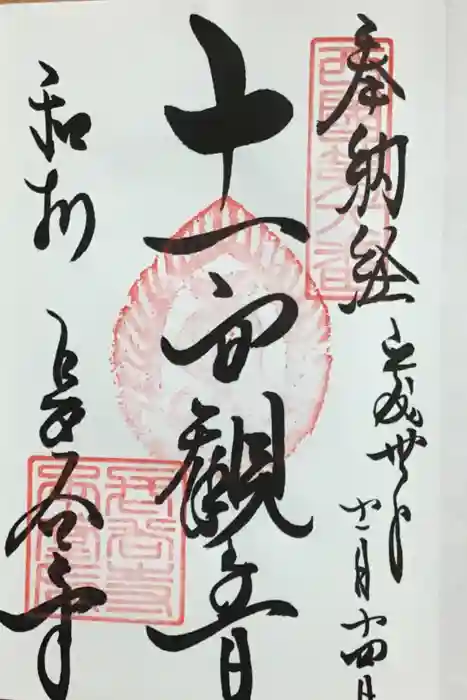 奉納経
平成卅年
十一月十四日
十一面観音
和州
長谷寺